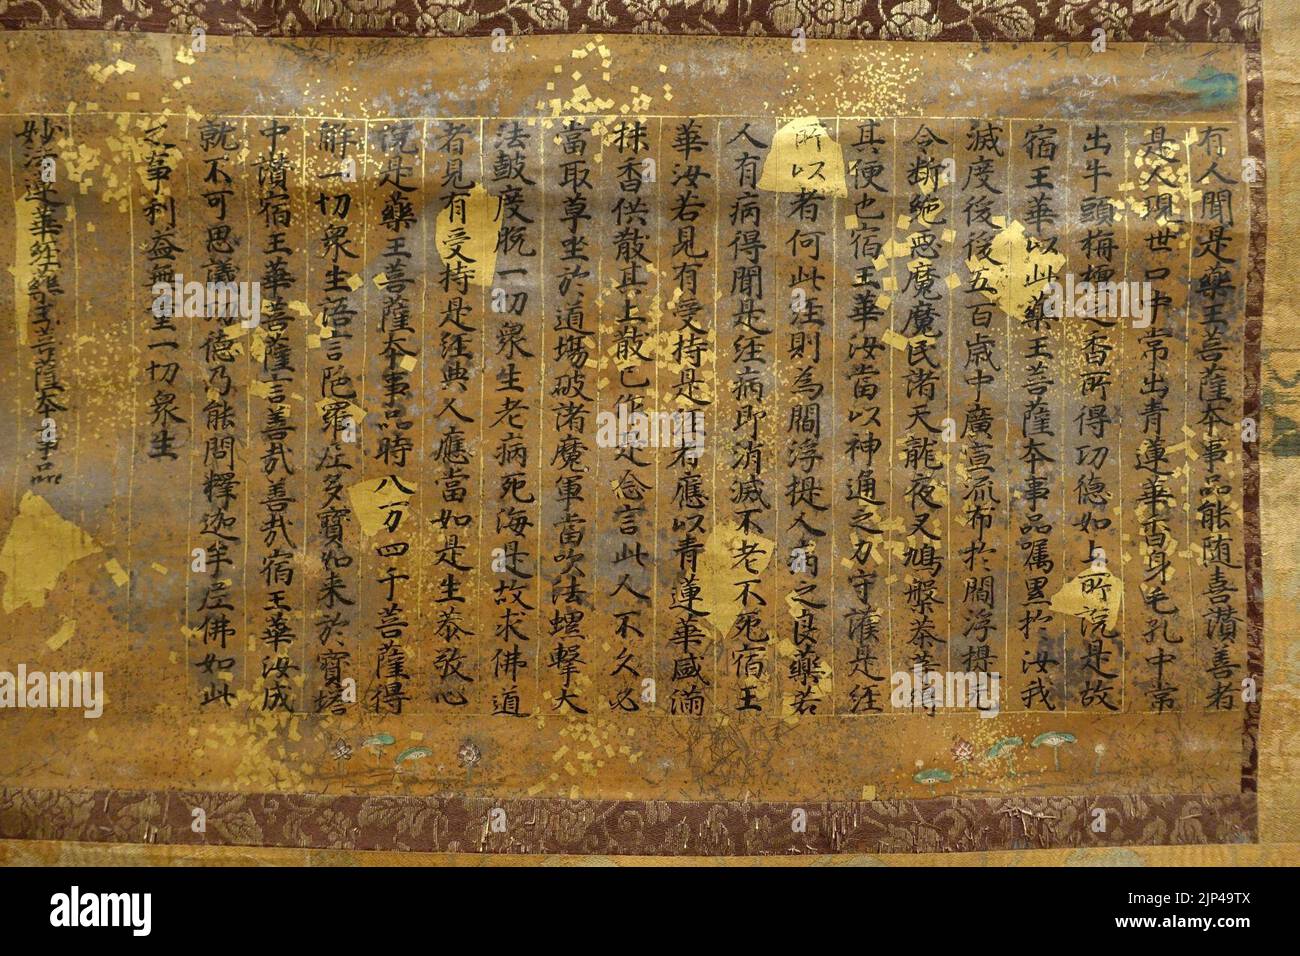 有人聞是藥王菩薩本事品能随喜讃善者
是人現世口中常出青蓮華香身毛孔中常
出牛頭栴檀之香所得功德如上所說是故
宿王華以此藥王菩薩本事品囑累於汝我
滅度後後五百歲中廣宣流布於閻浮提无
令斷絶惡魔魔民諸天龍夜叉鳩槃荼等得
其便也宿王華汝當以神通之力守護是經
所以者何此經則為閻浮提人病之良藥若
人有病得聞是經病即消滅不老不死宿王
華汝若見有受持是經者應以青蓮華盛滿
抹香供散其上散已作是念言此人不久必
當取草坐於道場破諸魔軍當吹法螺擊大
法鼓度脫一切衆生老病死海是故求佛道
者見有受持是經典人應當如是生恭敬心
說是藥王菩薩本事品時八万四千菩薩得
解一切衆生語言陀羅尼多寶如来於寶塔
中讃宿王華菩薩言善哉善哉宿王華汝成
就不可思議功德乃能問釋迦牟尼佛如此
之事利益無量一切衆生
妙法蓮華經藥王菩薩本事品
alamy
Image ID: 2JP49TX
www.alamy.com